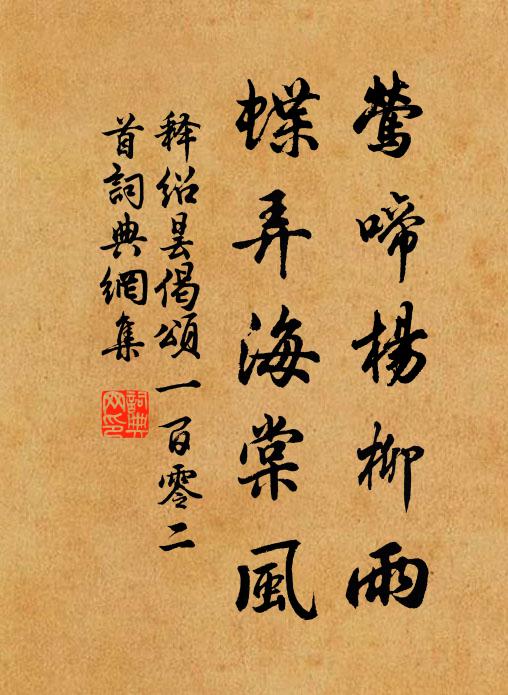 鶯啼楊柳雨
蝶弄海棠風
释紹曇偈頌一百零二
首詞典網集
詞典
网印